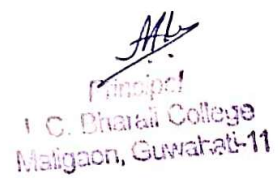 Principal
L. C. Bharali College
Maligaon, Guwahati-11